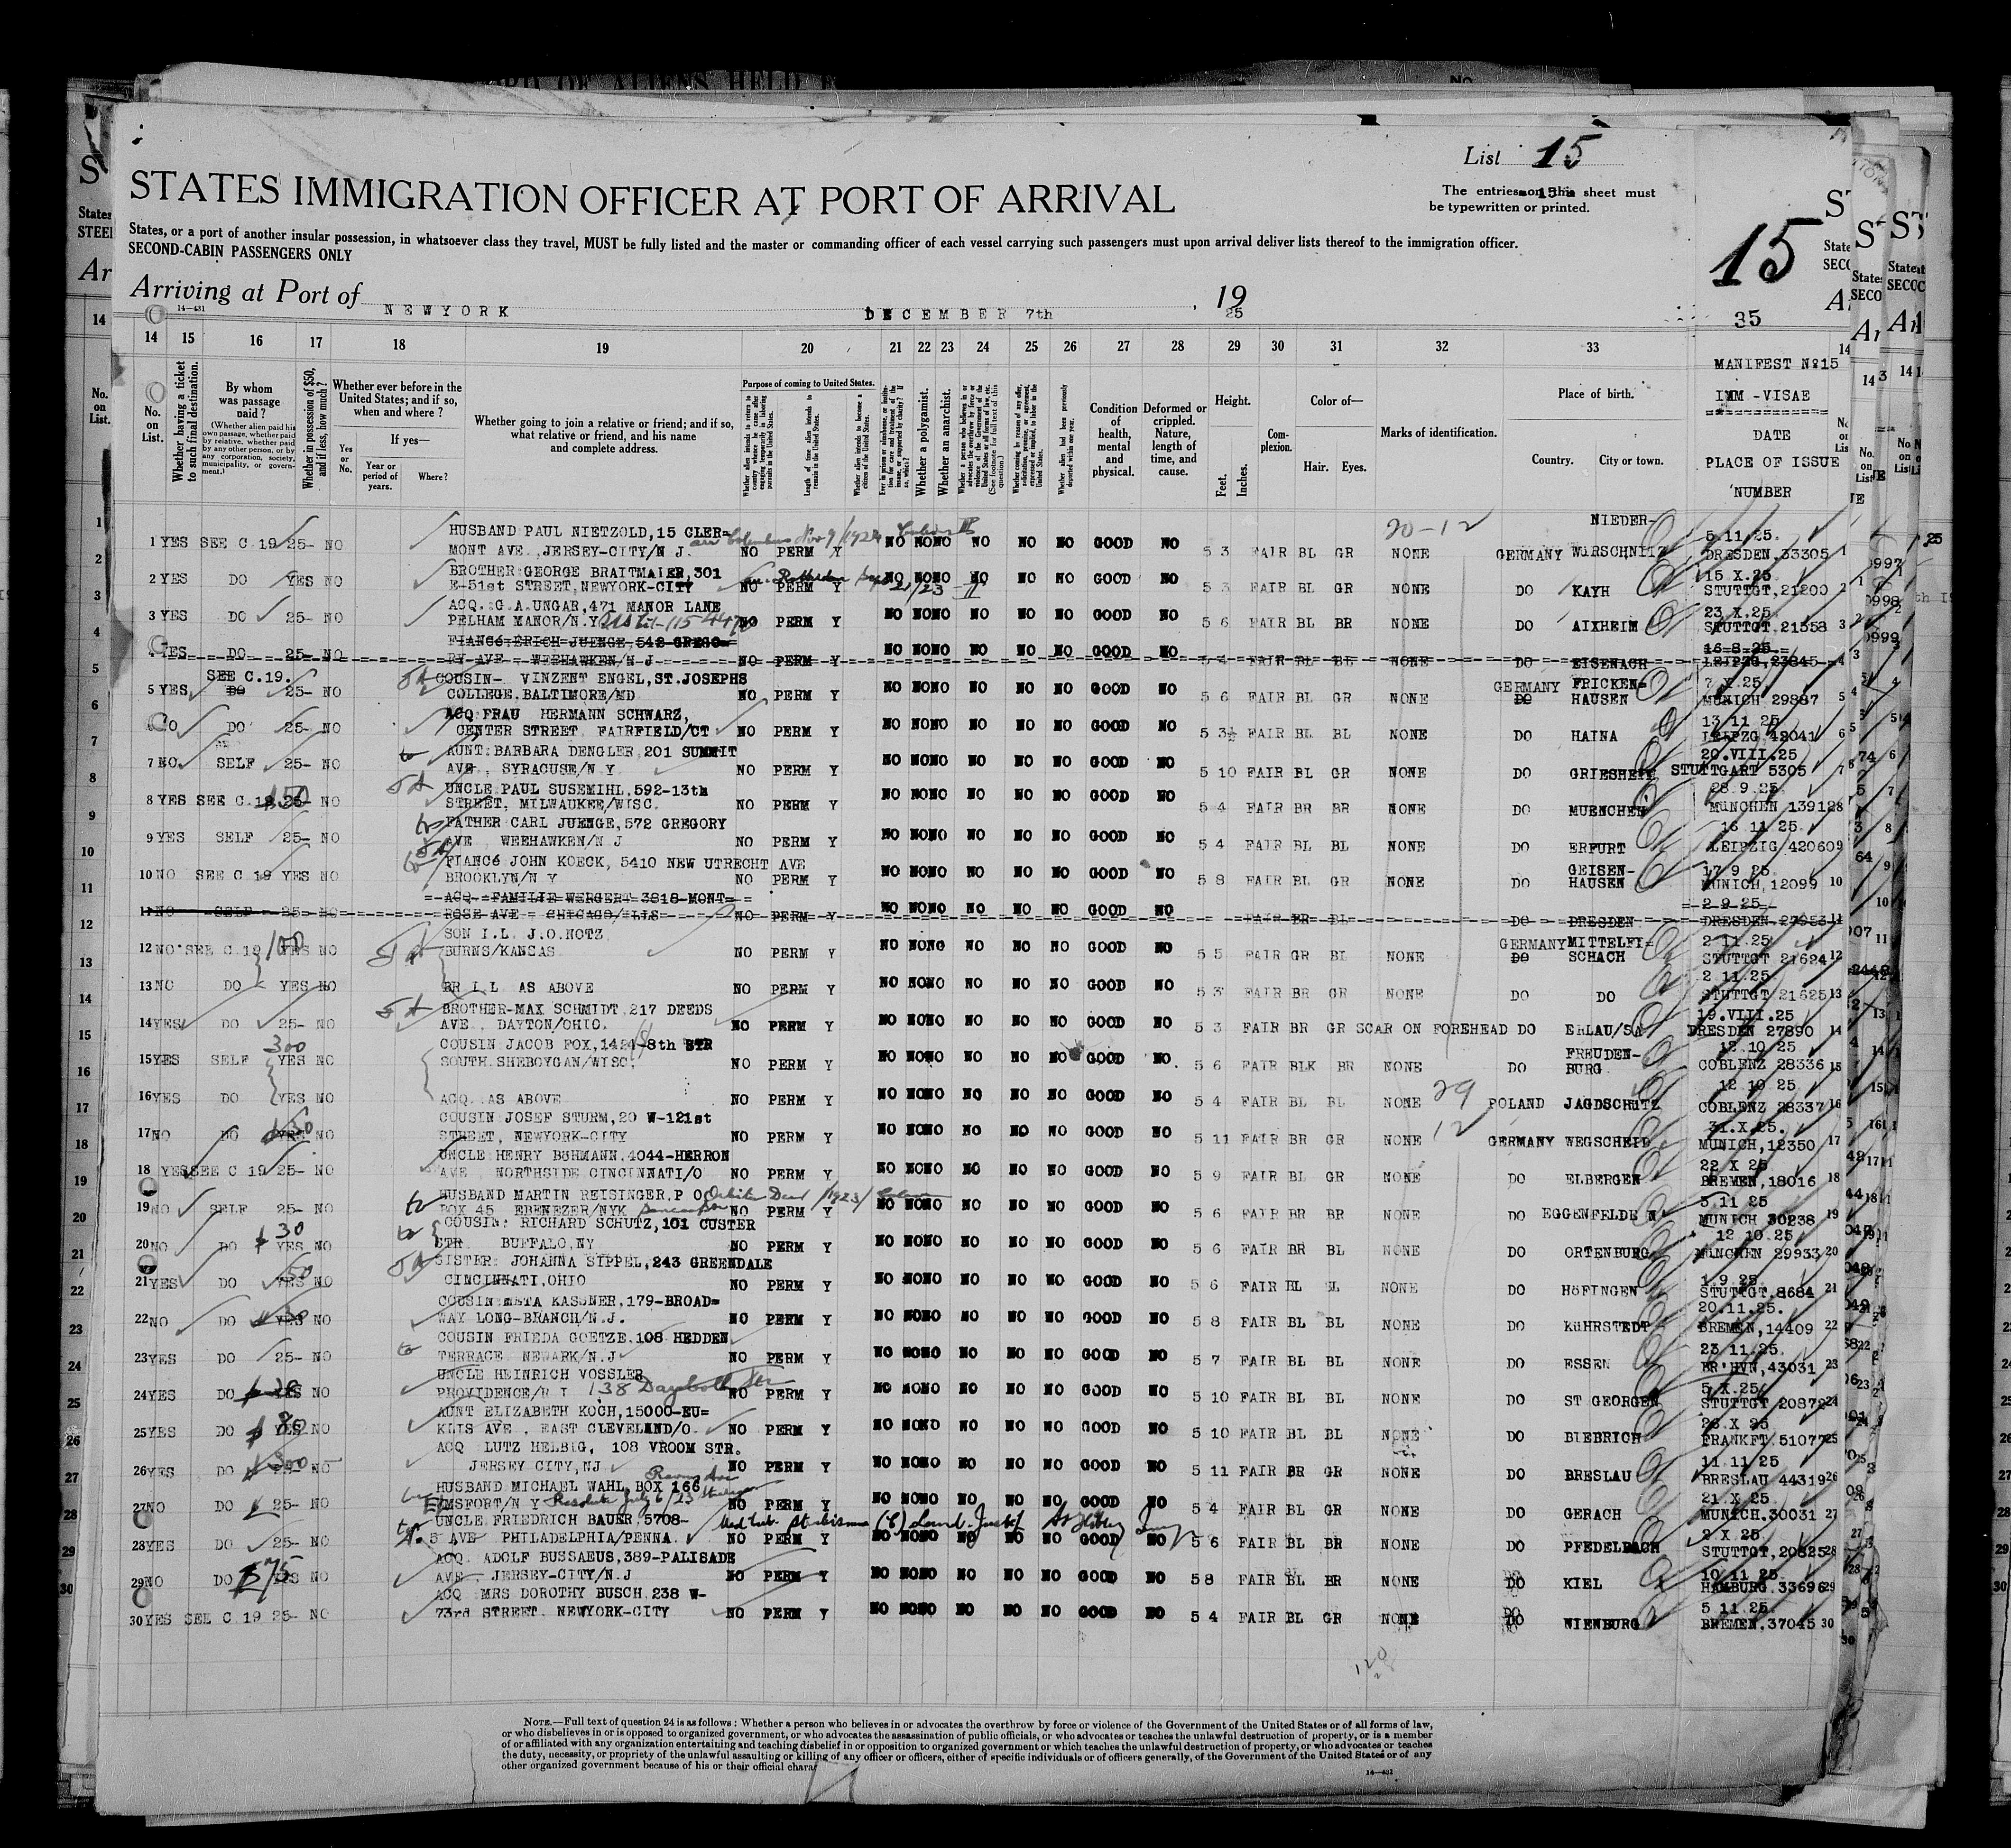 List 15
STATES IMMIGRATION OFFICER AT PORT OF ARRIVAL
The entries on this sheet must
be typewritten or printed.
States, or a port of another insular possession, in whatsoever class they travel, MUST be fully listed and the master or commanding officer of each vessel carrying such passengers must upon arrival deliver lists thereof to the immigration officer.
SECOND-CABIN PASSENGERS ONLY
15
Arriving at Port of NEWYORK DECEMBER 7th, 1925
14—431
35
14 15 16 17 18 19 20 21 22 23 24 25 26 27 28 29 30 31 32 33
MANIFEST No15
IMM-VISAE
DATE
PLACE OF ISSUE
NUMBER
No. on List.
Whether having a ticket to such final destination.
By whom was passage paid?
(Whether alien paid his own passage, whether paid by relative, whether paid by any other person, or by any corporation, society, municipality, or government.)
Whether in possession of $50, and if less, how much?
Whether ever before in the United States; and if so, when and where?
Yes or No.
If yes—
Year or period of years.
Where?
Whether going to join a relative or friend; and if so, what relative or friend, and his name and complete address.
Purpose of coming to United States.
Whether alien intends to return to country whence he came after engaging temporarily in laboring pursuits in the United States.
Length of time alien intends to remain in the United States.
Whether alien intends to become a citizen of the United States.
Whether a polygamist.
Whether an anarchist.
Condition of health, mental and physical.
Deformed or crippled. Nature, length of time, and cause.
Height.
Feet. Inches.
Complexion.
Color of—
Hair. Eyes.
Marks of identification.
Place of birth.
Country. City or town.
20-12
HUSBAND PAUL NIETZOLD,15 CLER= NIEDER- 5.11.25.
1 YES SEE C.19 25- NO MONT AVE. JERSEY-CITY/N J. NO PERM Y NO NO NO NO NO NO GOOD NO 5 3 FAIR BL GR NONE GERMANY WURSCHNITZ DRESDEN,33305 1
BROTHER GEORGE BRAITMAIER,301 15 X.25.
2 YES DO YES NO E-51st STRSET,NEWYORK-CITY NO PERM Y NO NO NO NO NO NO GOOD NO 5 3 FAIR BL GR NONE DO KAYH STUTTGT,21200 2
ACQ. G.A.UNGAR,471 MANOR LANE 23 X.25.
3 YES DO 25- NO PELHAM MANOR/N.Y NO PERM Y NO NO NO NO NO NO GOOD NO 5 6 FAIR BL BR NONE DO AIXHEIM STUTTGT.21358 3
FIANCé ERICH JUENGE,542 GREGO= 16-8-25.
4 YES DO 25- NO RY AVE WEEHAWKEN/N J NO PERM Y NO NO NO NO NO NO GOOD NO 5 4 FAIR BL BL NONE DO EISENACH LEIPZG,23845 4
SEE C.19. COUSIN- VINZENT ENGEL,ST.JOSEPHS GERMANY FRICKEN= 7 X.25.
5 YES DO 25- NO COLLEGE.BALTIMORE/MD NO PERM Y NO NO NO NO NO NO GOOD NO 5 6 FAIR BL GR NONE DO HAUSEN MUNICH 29887 5
ACQ FRAU HERMANN SCHWARZ, 13 11 25
6 NO DO 25- NO CENTER STREET FAIRFIELD/CT NO PERM Y NO NO NO NO NO NO GOOD NO 5 3½ FAIR BL BL NONE DO HAINA LEIPZG 42041 6
AUNT BARBARA DENGLER 201 SUMMIT 20.VIII.25
7 NO SELF 25- NO AVE , SYRACUSE/N Y NO PERM Y NO NO NO NO NO NO GOOD NO 5 10 FAIR BL GR NONE DO GRIESHEIM STUTTGART 5305 7
UNCLE PAUL SUSEMIHL,592-13th 28.9.25.
8 YES SEE C.19 25- NO 50 STREET, MILWAUKEE/WISC. NO PERM Y NO NO NO NO NO NO GOOD NO 5 4 FAIR BR BR NONE DO MUENCHEN MUNCHEN 13912 8
FATHER CARL JUENGE,572 GREGORY 16 11 25
9 YES SELF 25- NO AVE WEEHAWKEN/N J NO PERM Y NO NO NO NO NO NO GOOD NO 5 4 FAIR BL BL NONE DO ERFURT LEIPZIG 42060 9
FIANCé JOHN KOECK, 5410 NEW UTRECHT AVE GEISEN- 17 9 25.
10 NO SEE C.19 YES NO BROOKLYN/N Y NO PERM Y NO NO NO NO NO NO GOOD NO 5 8 FAIR BL GR NONE DO HAUSEN MUNICH,12099 10
ACQ FAMILIE WERGERT 3818 MONT= 2 9 25
11 NO SELF 25- NO ROSE AVE CHICAGO/ILLS NO PERM Y NO NO NO NO NO NO GOOD NO FAIR BR BL DO DRESDEN DRESDEN 27953 11
SON I.L. J.O.NOTZ GERMANY MITTELFI= 2 11.25
12 NO SEE C.19 YES NO 100 BURNS/KANSAS NO PERM Y NO NO NO NO NO NO GOOD NO 5 5 FAIR GR BL NONE DO SCHACH STUTTGT 21624 12
2 11.25
13 NO DO YES NO BR I.L AS ABOVE NO PERM Y NO NO NO NO NO NO GOOD NO 5 3 FAIR BR GR NONE DO DO STUTTGT 21625 13
BROTHER-MAX SCHMIDT 217 DEEDS 19.VIII.25
14 YES DO 25- NO AVE , DAYTON/OHIO. NO PERM Y NO NO NO NO NO NO GOOD NO 5 3 FAIR BR GR SCAR ON FOREHEAD DO ERLAU/SA DRESDEN 27890 14
300 COUSIN JACOB FOX,1424-8th STR FREUDEN- 12 10 25
15 YES SELF YES NO SOUTH.SHEBOYGAN/WISC. NO PERM Y NO NO NO NO NO NO GOOD NO. 5 6 FAIR BLK BR NONE DO BURG COBLENZ 28336 15
29 12 10 25
16 YES DO YES NO ACQ. AS ABOVE NO PERM Y NO NO NO NO NO NO GOOD NO 5 4 FAIR BL BL NONE POLAND JAGDSCHüTZ COBLENZ 28337 16
COUSIN JOSEF STURM,20 W-121st 12 31.X.25.
17 NO DO YES NO 30 STREET, NEWYORK-CITY NO PERM Y NO NO NO NO NO NO GOOD NO 5 11 FAIR BR GR NONE GERMANY WEGSCHEID MUNICH,12350 17
UNCLE HENRY BüHMANN,4044-HERRON 22 X 25
18 YES SEE C 19 25- NO AVE , NORTHSIDE CINCINNATI/O NO PERM Y NO NO NO NO NO NO GOOD NO 5 9 FAIR BL GR NONE DO ELBERGEN BREMEN,18016 18
HUSBAND MARTIN REISINGER,P O 3 11 25
19 NO SELF 25- NO BOX 45 EBENEZER/NYK NO PERM Y NO NO NO NO NO NO GOOD NO 5 6 FAIR BR BR NONE DO EGGENFELDEN MUNICH 30238 19
30 COUSIN: RICHARD SCHUTZ,101 CUSTER 12 10.25.
20 NO DO YES NO STR BUFFALO,NY NO PERM Y NO NO NO NO NO NO GOOD NO 5 6 FAIR BR BL NONE DO ORTENBURG MüNCHEN 29933 20
SISTER: JOHANNA SIPPEL,243 GREENDALE 1.9 25.
21 YES DO YES NO 50 CINCINNATI,OHIO NO PERM Y NO NO NO NO NO NO GOOD NO 5 6 FAIR BL BL NONE DO HöFINGEN STUTTGT.8684 21
COUSIN META KASSNER,179-BROAD= 20.11.25.
22 NO DO YES NO 30 WAY LONG-BRANCH/N.J. NO PERM Y NO NO NO NO NO NO GOOD NO 5 8 FAIR BL BL NONE DO KüHRSTEDT BREMEN,14409 22
COUSIN FRIEDA GOETZE,108 HEDDEN 23 11.25.
23 YES DO 25- NO TERRACE NEWARK/N.J NO PERM Y NO NO NO NO NO NO GOOD NO 5 7 FAIR BL BL NONE DO ESSEN BR'HVN,43031 23
UNCLE HEINRICH VOSSLER 5 X.25.
24 YES DO YES NO PROVIDENCE/R I NO PERM Y NO NO NO NO NO NO GOOD NO 5 10 FAIR BL BL NONE DO ST GEORGEN STUTTGT 20872 24
AUNT ELIZABETH KOCH,15000-EU= 26 X 25
25 YES DO YES NO 80 KLIS AVE . EAST CLEVELAND/O. NO PERM Y NO NO NO NO NO NO GOOD NO 5 10 FAIR BL BL NONE DO BIEBRICH FRANKFT.51077 25
ACQ LUTZ HELBIG, 108 VROOM STR. 11.11 25
26 YES DO 25- NO 300 JERSEY CITY,NJ NO PERM Y NO NO NO NO NO NO GOOD NO 5 11 FAIR BR GR NONE DO BRESLAU BRESLAU 44319 26
HUSBAND MICHAEL WAHL,BOX 166 21 X 25
27 NO DO 25- NO ELMSFORT/N Y Resolute July 6/23 NO PERM Y NO NO NO NO NO NO GOOD NO 5 4 FAIR BL GR NONE DO GERACH MUNICH.30031 27
UNCLE FRIEDRICH BAUER 5708- 2 X 25.
28 YES DO 25- NO 5 AVE PHILADELPHIA/PENNA. NO PERM Y NO NO NO NO NO NO GOOD NO 5 6 FAIR BL BR NONE DO PFEDELBACH STUTTGT,20825 28
ACQ. ADOLF BUSSAEUS,389-PALISADE 10 11 25.
29 NO DO YES NO 75 AVE JERSEY-CITY/N.J NO PERM Y NO NO NO NO NO NO GOOD NO 5 8 FAIR BL BR NONE DO KIEL HAMBURG 33696 29
ACQ MRS DOROTHY BUSCH.238 W- 5 11 25.
30 YES SEE C 19 25- NO 73rd STREET. NEWYORK-CITY NO PERM Y NO NO NO NO NO NO GOOD NO 5 4 FAIR BL GR NONE DO NIENBURG BREMEN.37045 30
NOTE.—Full text of question 24 is as follows: Whether a person who believes in or advocates the overthrow by force or violence of the Government of the United States or of all forms of law,
or who disbelieves in or is opposed to organized government, or who advocates the assassination of public officials, or who advocates or teaches the unlawful destruction of property, or is a member
of or affiliated with any organization entertaining and teaching disbelief in or opposition to organized government or which teaches the unlawful destruction of property, or who advocates or teaches
the duty, necessity, or propriety of the unlawful assaulting or killing of any officer or officers, either of specific individuals or of officers generally, of the Government of the United States or of any
other organized government because of his or their official chara
14—431